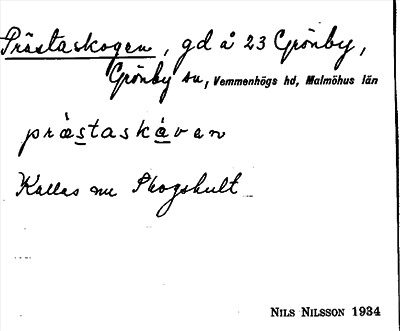 Prästaskogen, gd å 23 Grönby,
Grönby sn, Vemmenhögs hd, Malmöhus län
præstaskávan
Kallas nu Skogshult
NILS NILSSON 1934